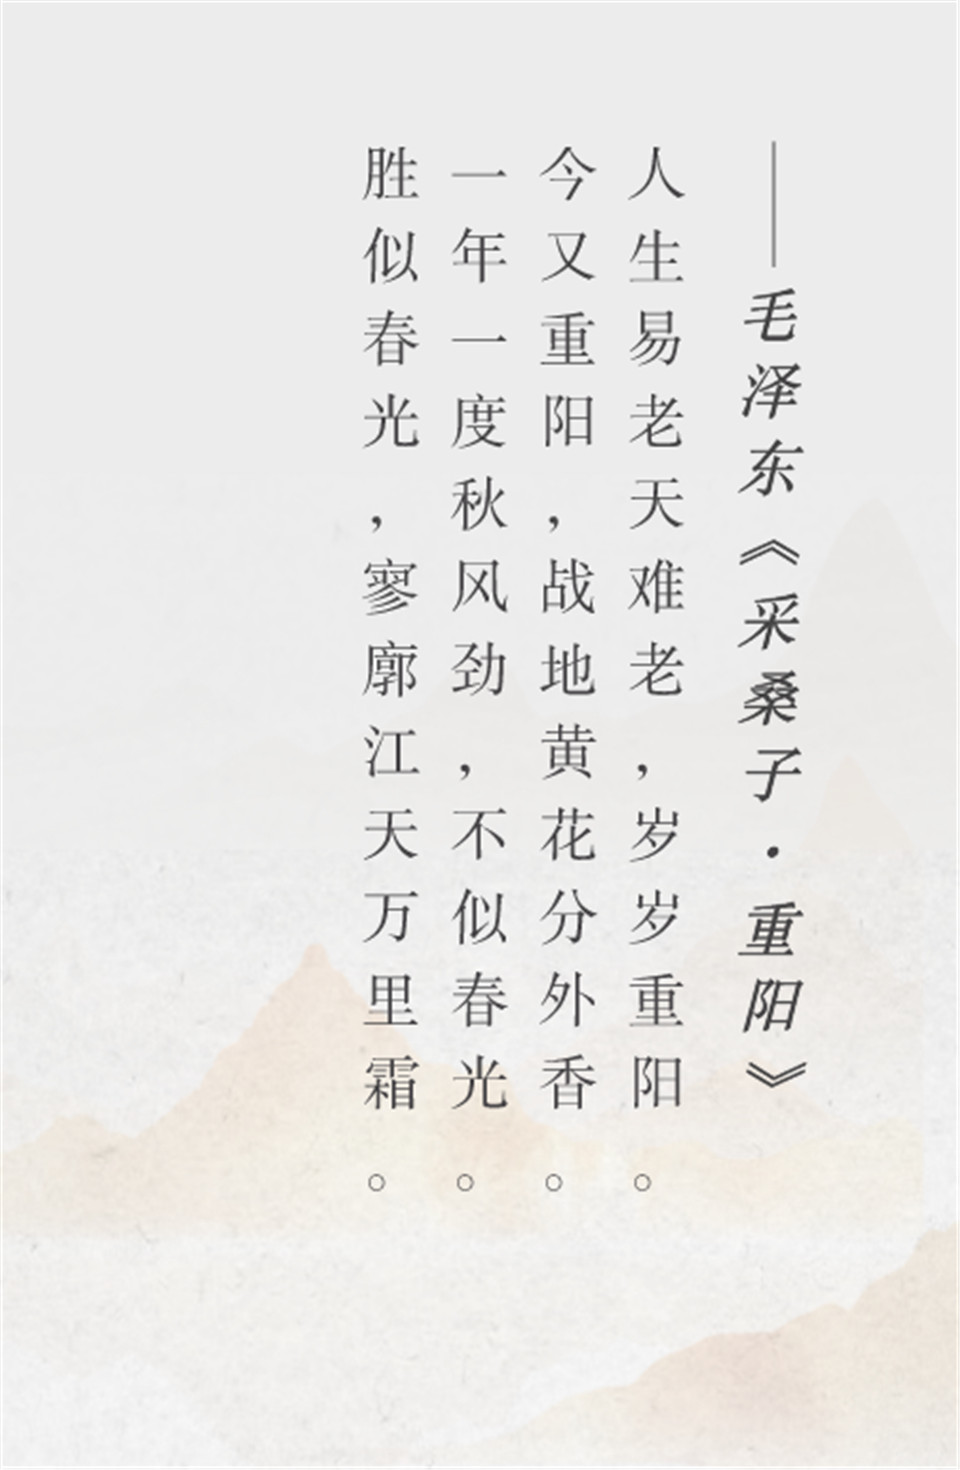 ——毛泽东《采桑子·重阳》
人生易老天难老，岁岁重阳。
今又重阳，战地黄花分外香。
一年一度秋风劲，不似春光。
胜似春光，寥廓江天万里霜。